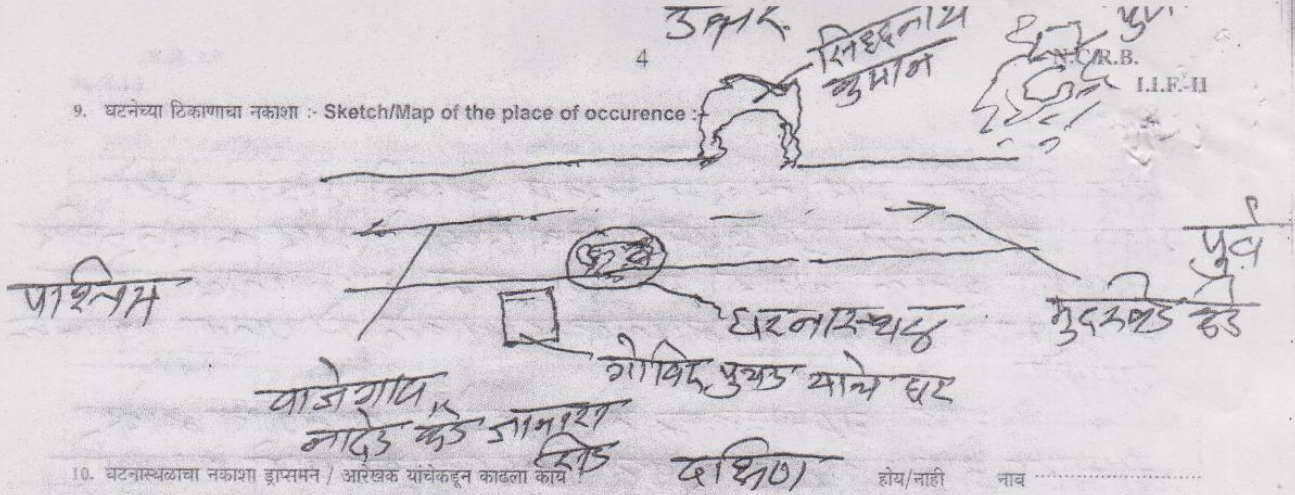 उत्तर
4
सिध्दनाथ
कुमान
N.C.R.B.
I.I.F.-II
9. घटनेच्या ठिकाणाचा नकाशा :- Sketch/Map of the place of occurence :-
पुर्व
पश्चिम
घटनास्थळ
मुदखेड कडे
गोविंद पुयड याचे घर
वाजेगाव
नादेड कडे जाणारा
रोड
दक्षिण
10. घटनास्थळाचा नकाशा ड्राप्समन / आरेखक यांचेकडून काढला काय ? होय/नाही नाव ........................